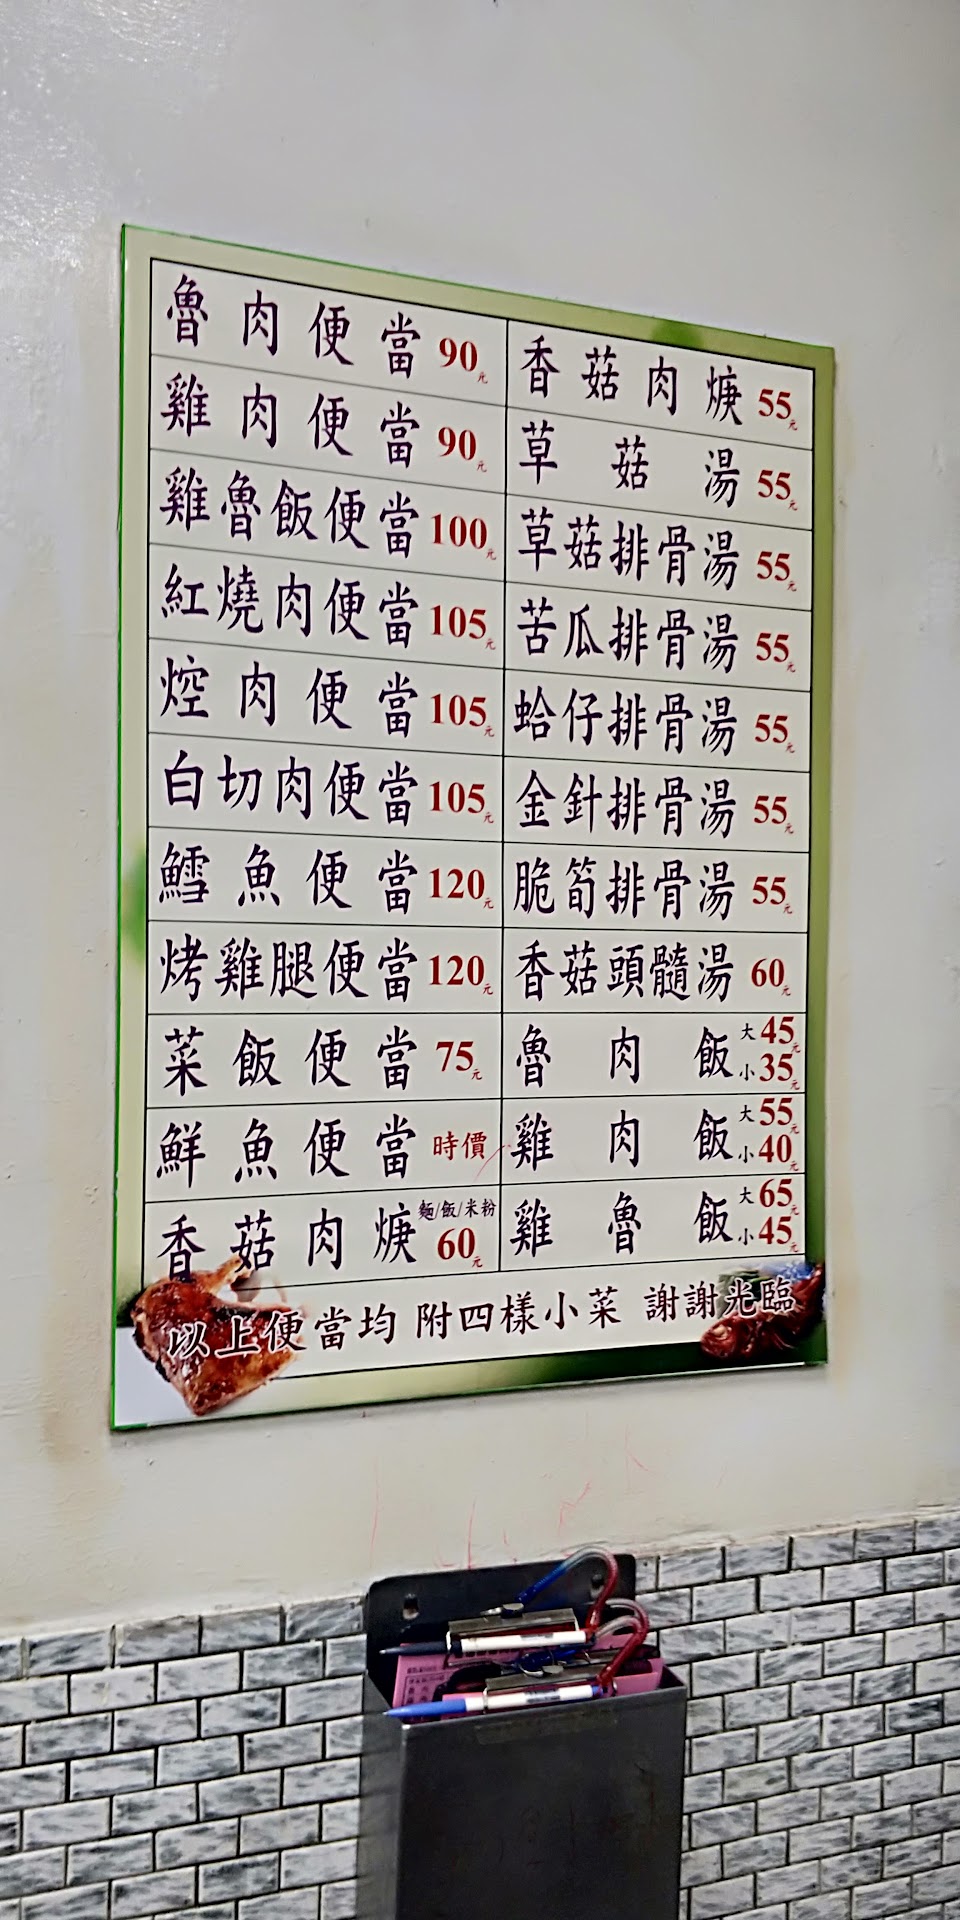 魯肉便當 90元
雞肉便當 90元
雞魯飯便當 100元
紅燒肉便當 105元
焢肉便當 105元
白切肉便當 105元
鱈魚便當 120元
烤雞腿便當 120元
菜飯便當 75元
鮮魚便當 時價
香菇肉焿 麵/飯/米粉 60元
香菇肉焿 55元
草菇湯 55元
草菇排骨湯 55元
苦瓜排骨湯 55元
蛤仔排骨湯 55元
金針排骨湯 55元
脆筍排骨湯 55元
香菇頭髓湯 60元
魯肉飯 大45元 小35元
雞肉飯 大55元 小40元
雞魯飯 大65元 小45元
以上便當均 附四樣小菜 謝謝光臨